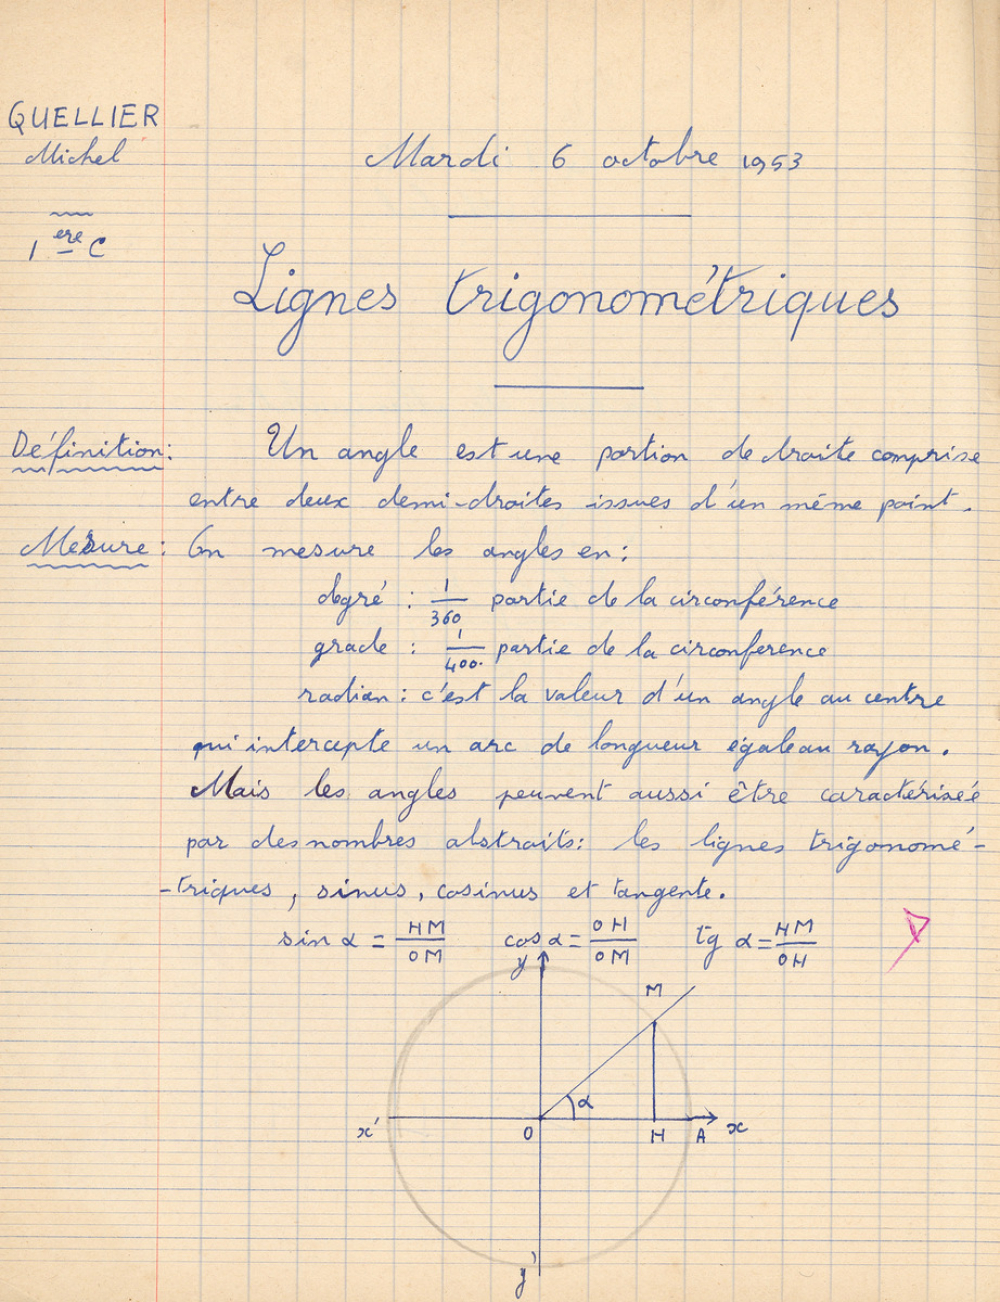 QUELLIER
Michel
Mardi 6 octobre 1953
1ère C
Lignes trigonométriques
Définition: Un angle est une portion de droite comprise
entre deux demi-droites issues d'un même point.
Mesure: On mesure les angles en:
degré : 1/360 partie de la circonférence
grade : 1/400. partie de la circonference
radian : c'est la valeur d'un angle au centre
qui intercepte un arc de longueur égale au rayon.
Mais les angles peuvent aussi être caractériseé
par des nombres abstraits: les lignes trigonomé-
-triques, sinus, cosinus et tangente.
sin α = HM/OM cos α = OH/OM tg α = HM/OH
y
M
α
x' O H A x
y'